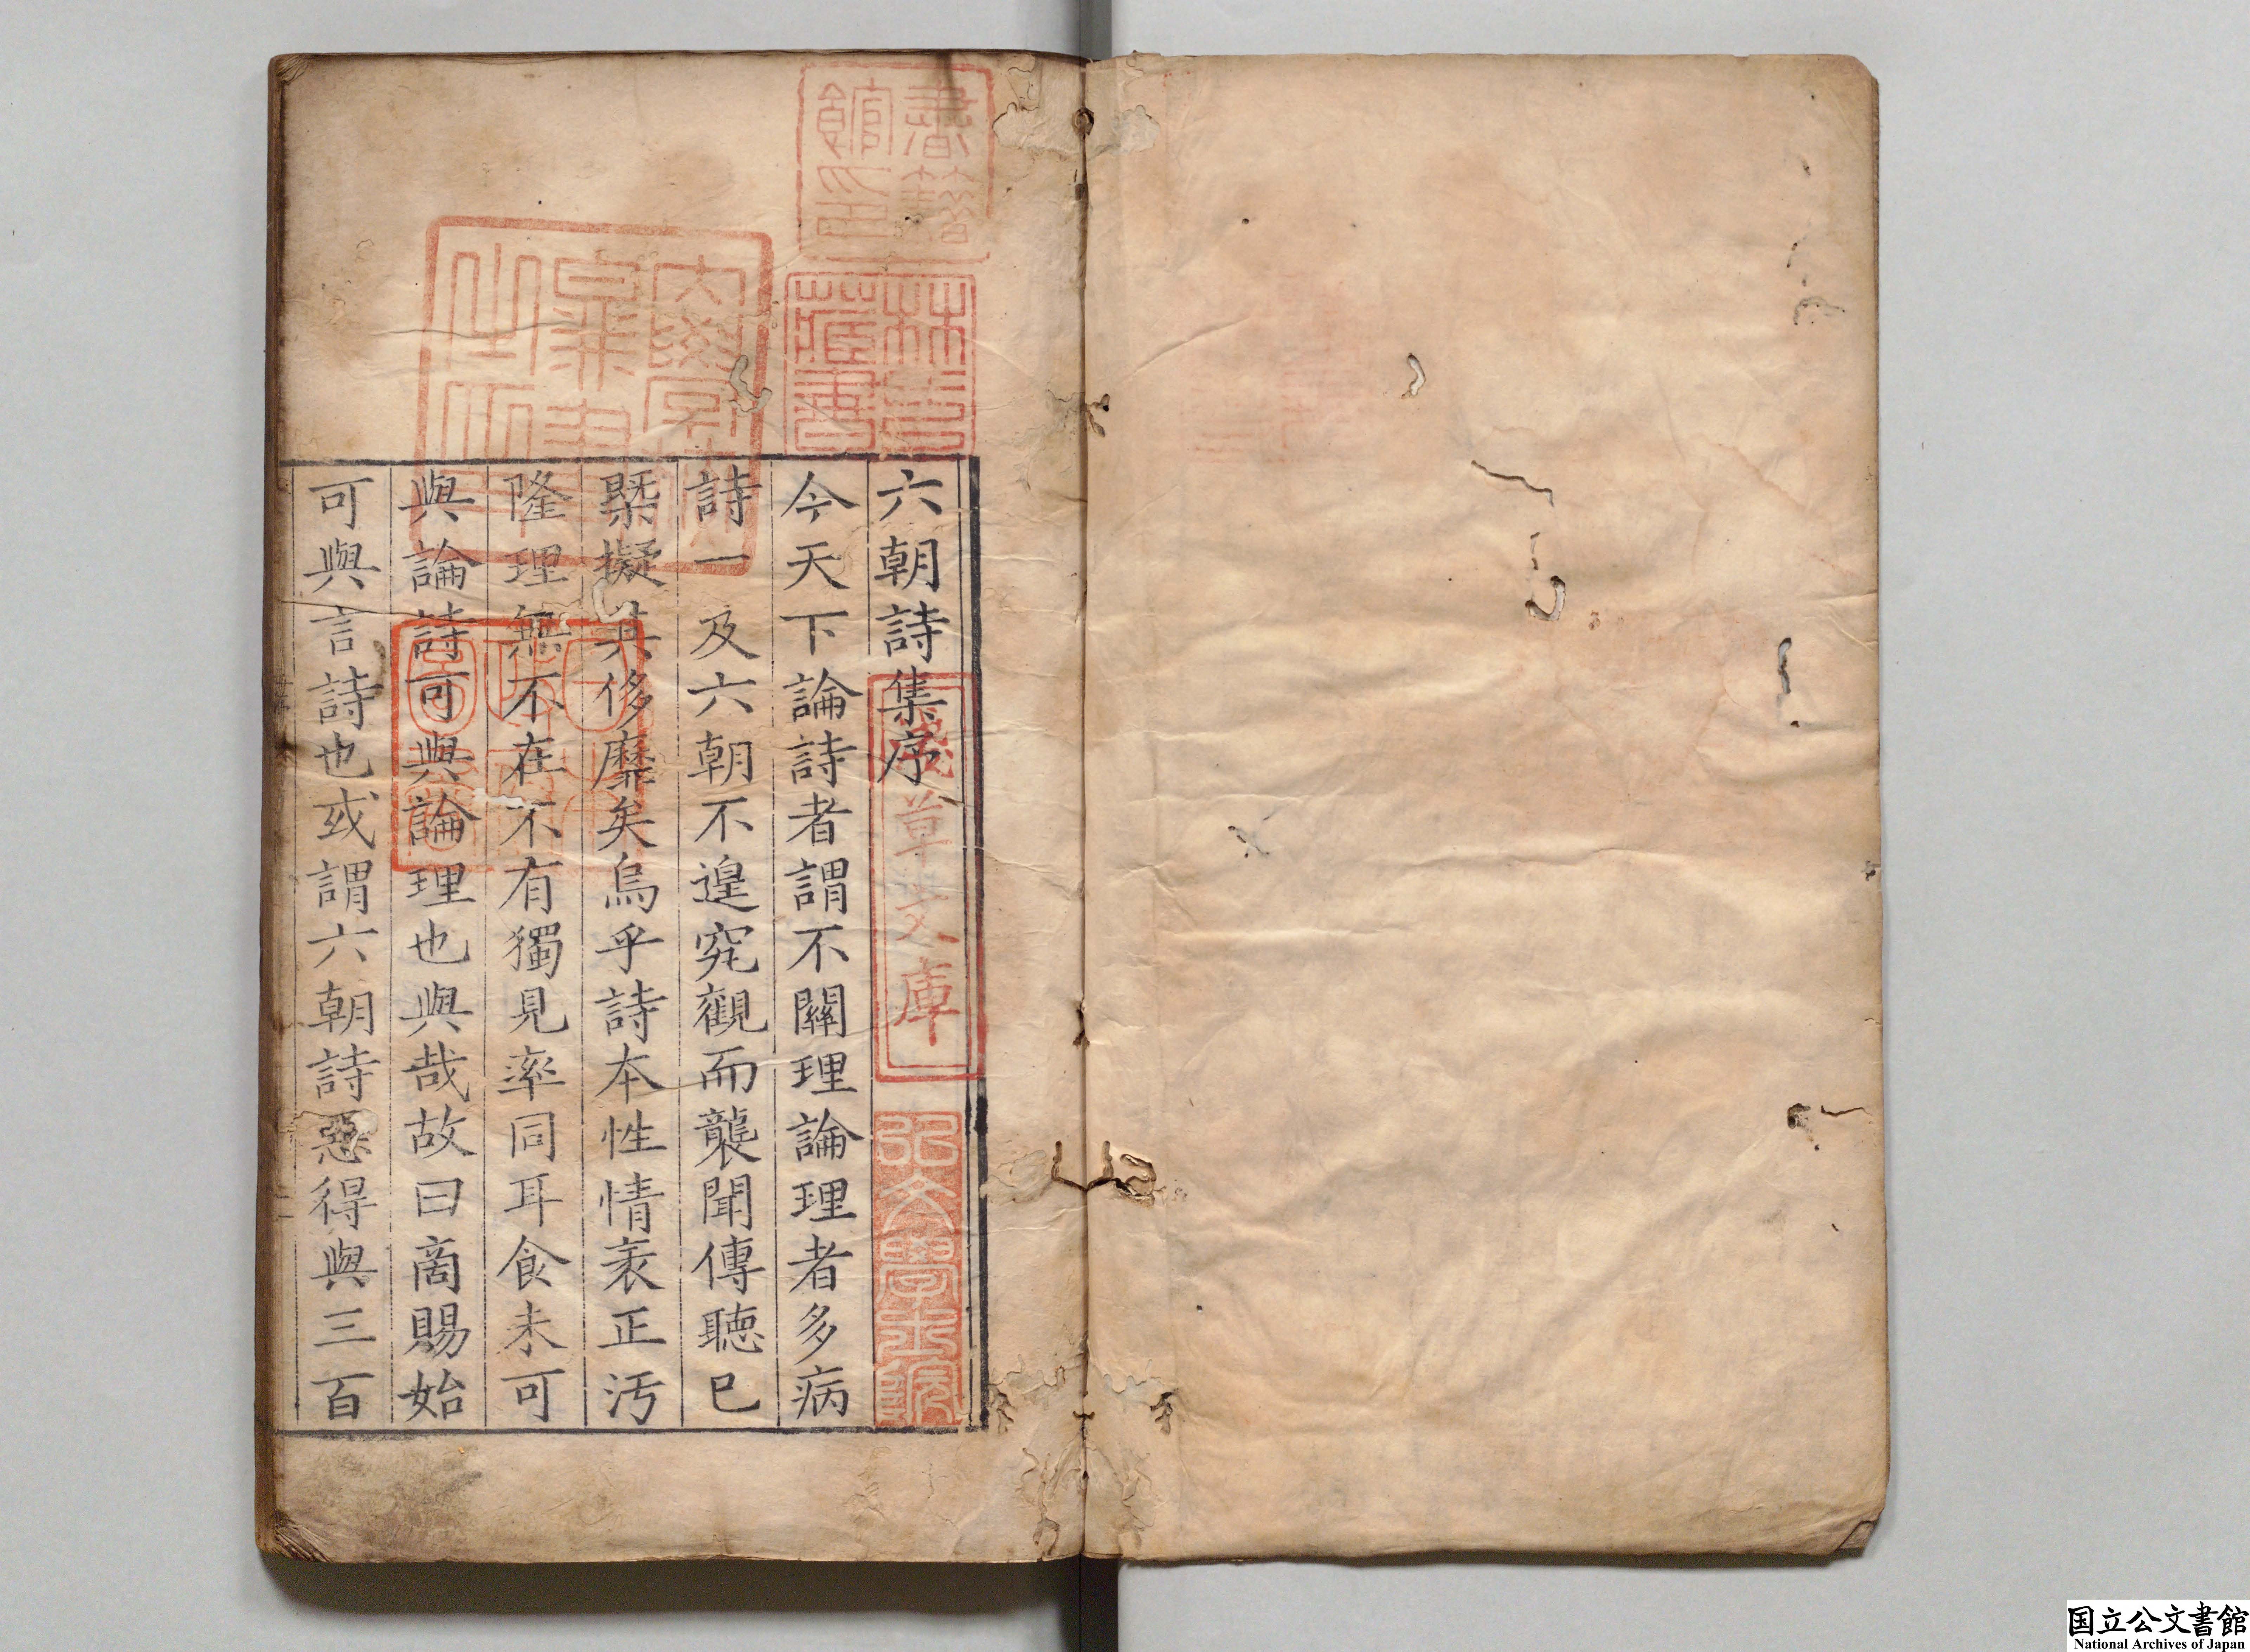 六朝詩集序
今天下論詩者謂不關理論理者多病
詩一及六朝不遑究觀而襲聞傳聽已
槩擬其侈靡矣烏乎詩本性情袤正汚
隆理無不在不有獨見率同耳食未可
與論詩可與論理也與哉故曰商賜始
可與言詩也或謂六朝詩惡得與三百
書籍
館印
林氏
藏書
淺草文庫
弘文學士館
国立公文書館
National Archives of Japan